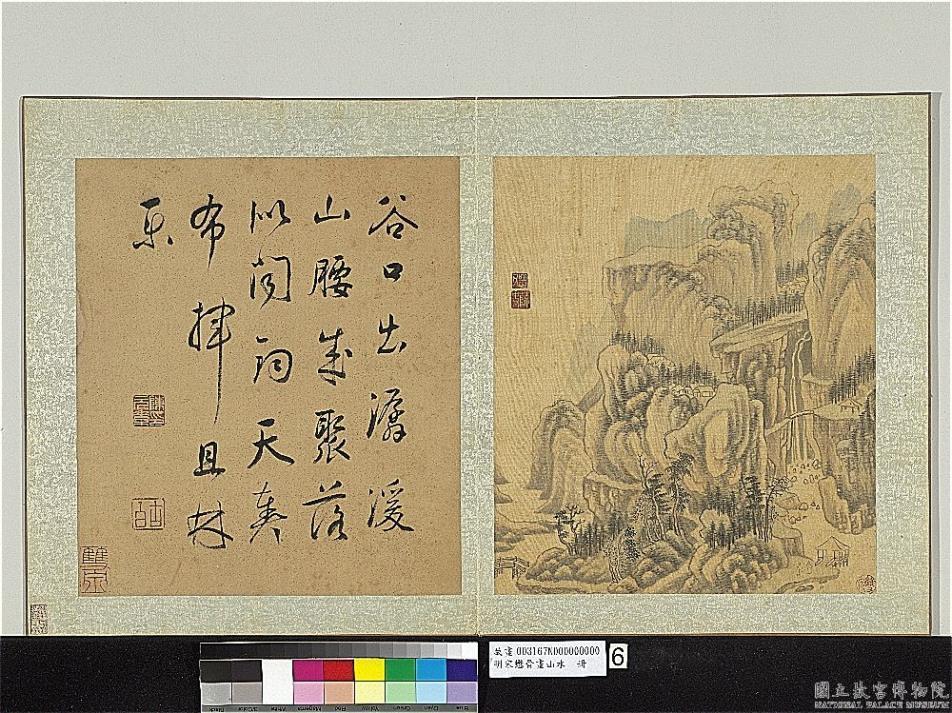 谷口出潺湲
山腰成聚落
似聞鈞天奏
且林
樂
故畫 003167N000000000
明宋懋晉畫山水 冊
6
國立故宮博物院
NATIONAL PALACE MUSEUM